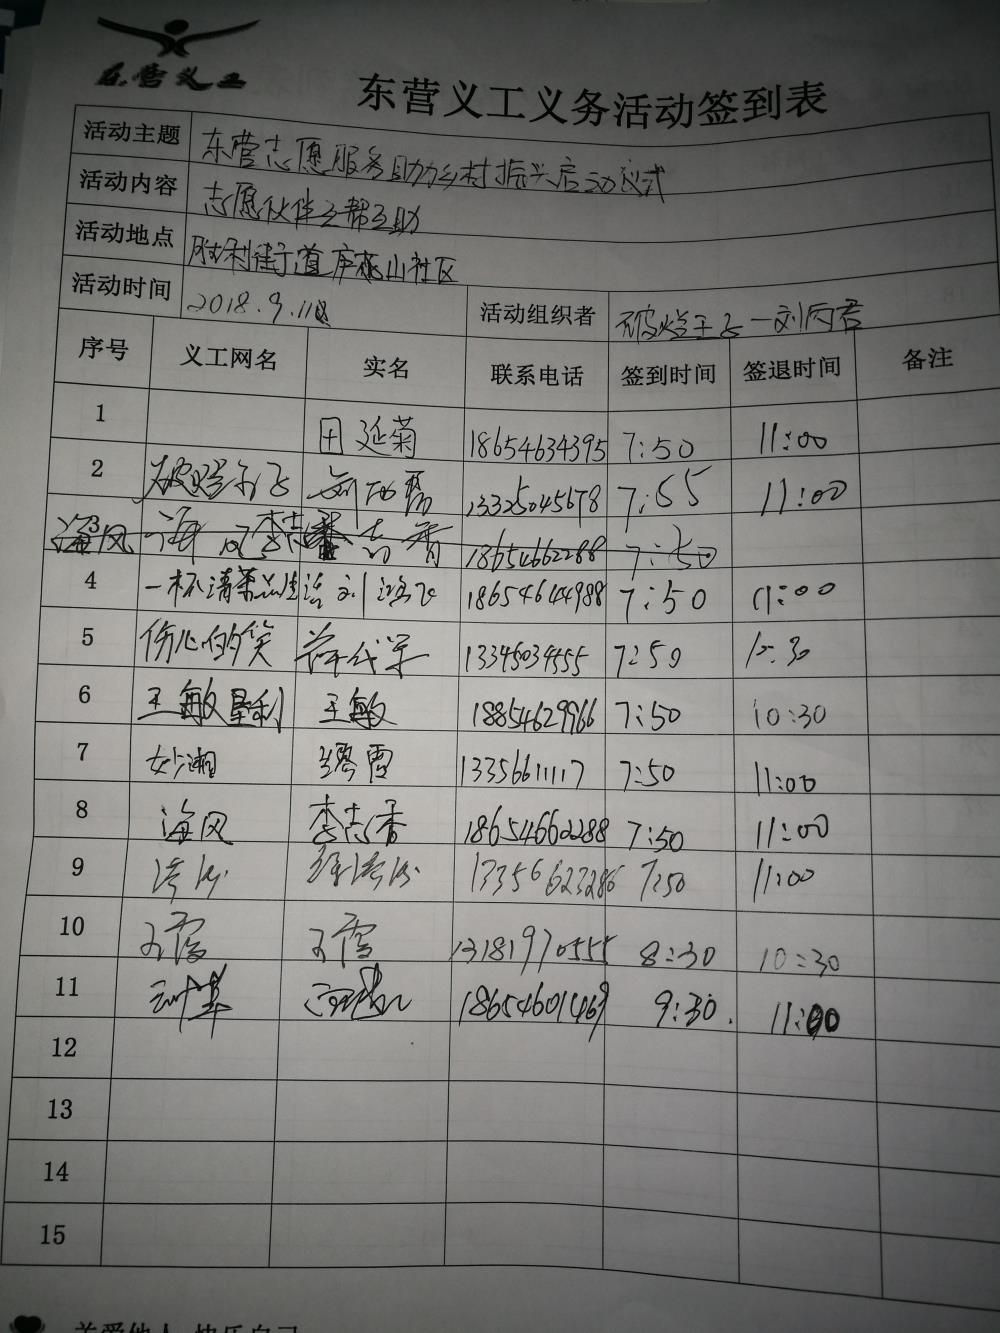 东营义工
东营义工义务活动签到表
活动主题 东营志愿服务助力乡村振兴启动仪式
活动内容 志愿伙伴互帮互助
活动地点 胜利街道 社区
活动时间 2018.9.11 活动组织者
序号 义工网名 实名 联系电话 签到时间 签退时间 备注
1 田延菊 18654634395 7:50 11:00
2 13325045678 7:55 11:00
3 海风 李志香 18654662288 7:50
4 一杯清茶品生活 刘 18654644988 7:50 11:00
5 伤心的笑 13345034555 7:50 10:30
6 王敏垦利 王敏 18854629966 7:50 10:30
7 妙湘 雪 13356611117 7:50 11:00
8 海风 李志香 18654662288 7:50 11:00
9 13356623286 7:50 11:00
10 王霞 王霞 13181970555 8:30 10:30
11 18654601469 9:30. 11:00
12
13
14
15
关爱他人 快乐自己